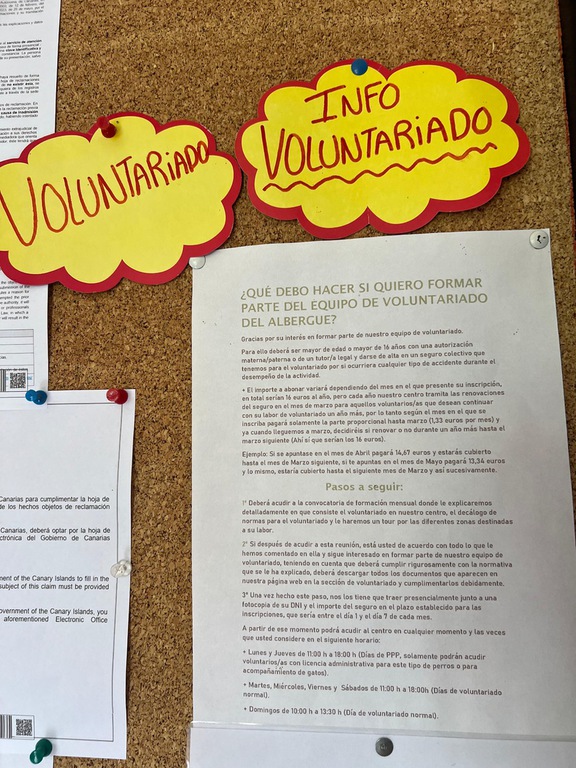 VOLUNTARIADO
INFO
VOLUNTARIADO
¿QUÉ DEBO HACER SI QUIERO FORMAR
PARTE DEL EQUIPO DE VOLUNTARIADO
DEL ALBERGUE?
Gracias por su interés en formar parte de nuestro equipo de voluntariado.
Para ello deberá ser mayor de edad o mayor de 16 años con una autorización
materna/paterna o de un tutor/a legal y darse de alta en un seguro colectivo que
tenemos para el voluntariado por si ocurriera cualquier tipo de accidente durante el
desempeño de la actividad.
+ El importe a abonar variará dependiendo del mes en el que presente su inscripción,
en total serían 16 euros al año, pero cada año nuestro centro tramita las renovaciones
del seguro en el mes de marzo para aquellos voluntarios/as que desean continuar
con su labor de voluntariado un año más, por lo tanto según el mes en el que se
inscriba pagará solamente la parte proporcional hasta marzo (1,33 euros por mes) y
ya cuando lleguemos a marzo, decidiréis si renovar o no durante un año más hasta el
marzo siguiente (Ahí sí que serían los 16 euros).
Ejemplo: Si se apuntase en el mes de Abril pagará 14,67 euros y estarás cubierto
hasta el mes de Marzo siguiente, si te apuntas en el mes de Mayo pagará 13,34 euros
y lo mismo, estaría cubierto hasta el siguiente mes de Marzo y así sucesivamente.
Pasos a seguir:
1º Deberá acudir a la convocatoria de formación mensual donde le explicaremos
detalladamente en que consiste el voluntariado en nuestro centro, el decálogo de
normas para el voluntariado y le haremos un tour por las diferentes zonas destinadas
a su labor.
2º Si después de acudir a esta reunión, está usted de acuerdo con todo lo que le
hemos comentado en ella y sigue interesado en formar parte de nuestro equipo de
voluntariado, teniendo en cuenta que deberá cumplir rigurosamente con la normativa
que se le ha explicado, deberá descargar todos los documentos que aparecen en
nuestra página web en la sección de voluntariado y cumplimentarlos debidamente.
3º Una vez hecho este paso, nos los tiene que traer presencialmente junto a una
fotocopia de su DNI y el importe del seguro en el plazo establecido para las
inscripciones, que sería entre el día 1 y el día 7 de cada mes.
A partir de ese momento podrá acudir al centro en cualquier momento y las veces
que usted considere en el siguiente horario:
+ Lunes y Jueves de 11:00 h a 18:00 h (Días de PPP, solamente podrán acudir
voluntarios/as con licencia administrativa para este tipo de perros o para
acompañamiento de gatos).
+ Martes, Miércoles, Viernes y Sábados de 11:00 h a 18:00h (Días de voluntariado
normal).
+ Domingos de 10:00 h a 13:30 h (Día de voluntariado normal).
Canarias para cumplimentar la hoja de
de los hechos objetos de reclamación
Canarias, deberá optar por la hoja de
ectrónica del Gobierno de Canarias
ment of the Canary Islands to fill in the
subject of this claim must be provided
overnment of the Canary Islands, you
aforementioned Electronic Office